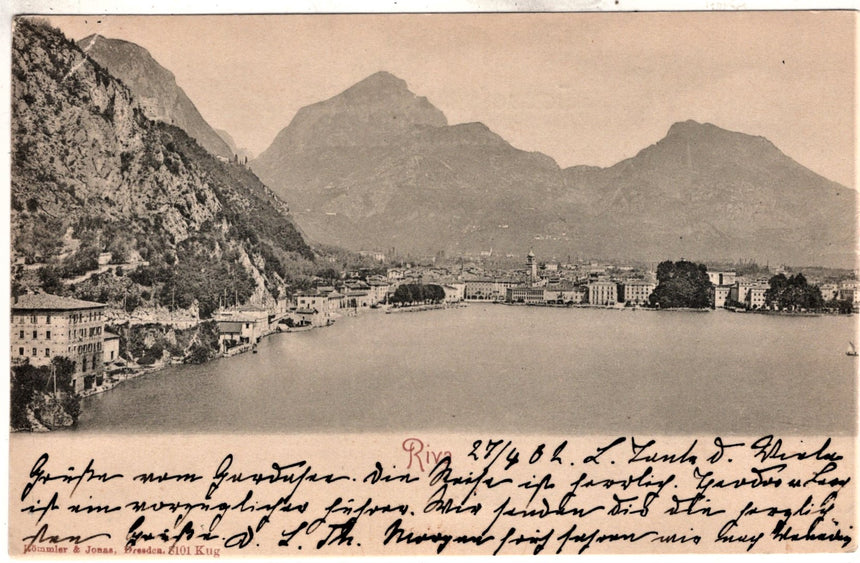 Riva
27/4 02. L. Tante d. Viele
Grüße vom Gardasee. Die Reise ist herrlich. Theodor u.
ist ein vorzüglicher Führer. Wir senden dir die herzlich
sten Grüße d. L. Th. Morgen früh fahren wir nach Venedig
Römmler & Jonas, Dresden. 8101 Kug